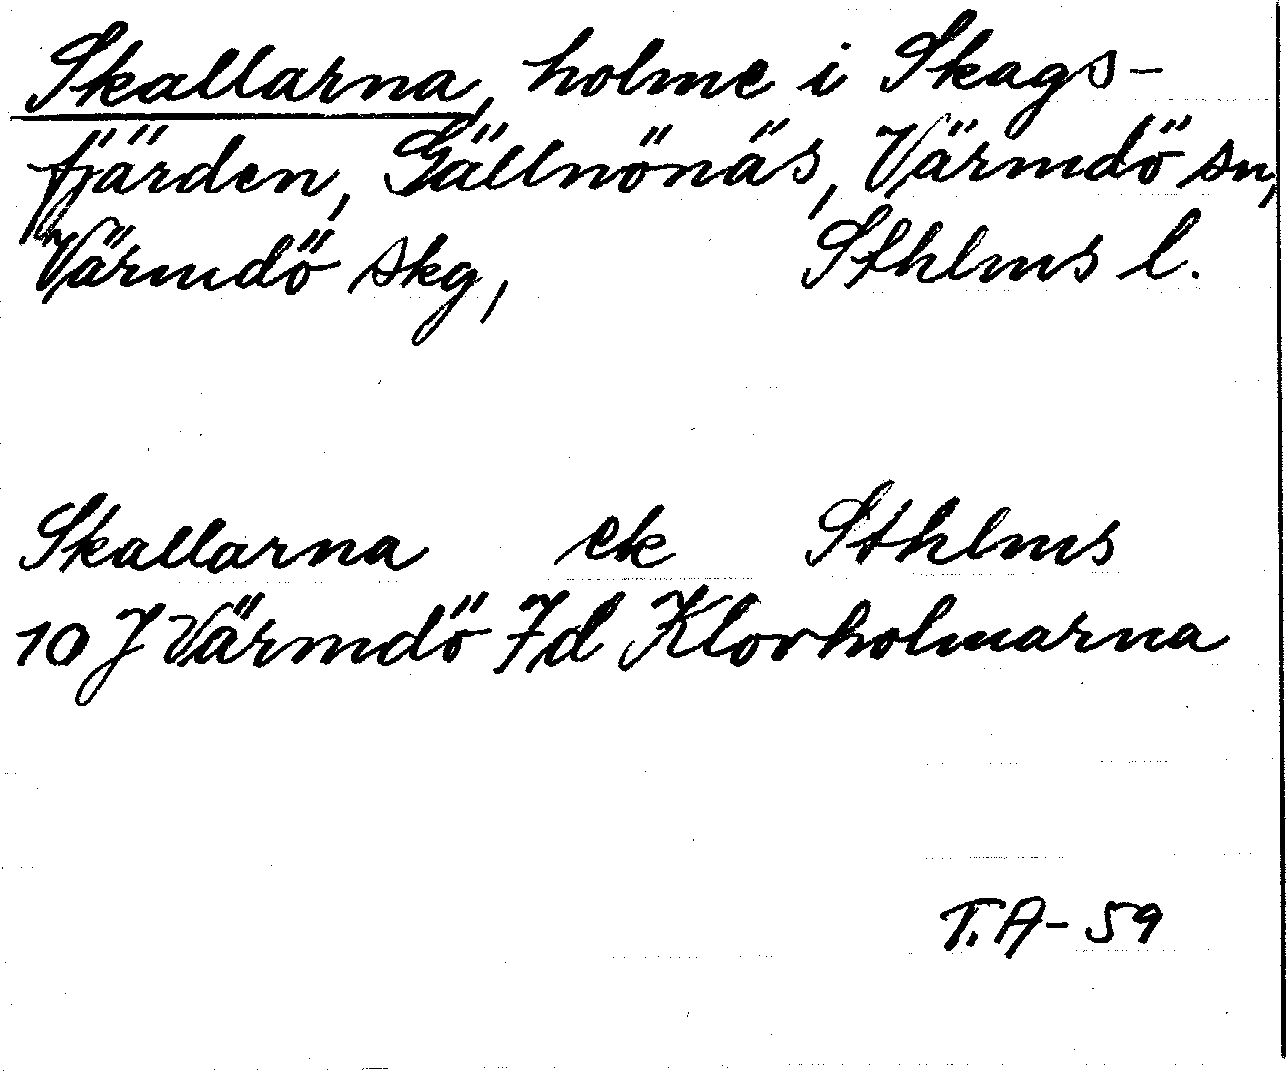 Skallarna, holme i Skags-
fjärden, Gällnönäs, Värmdö sn,
Värmdö skg, Sthlms l.
Skallarna ek Sthlms
10 J Värmdö Fd Klovholmarna
T.A-59